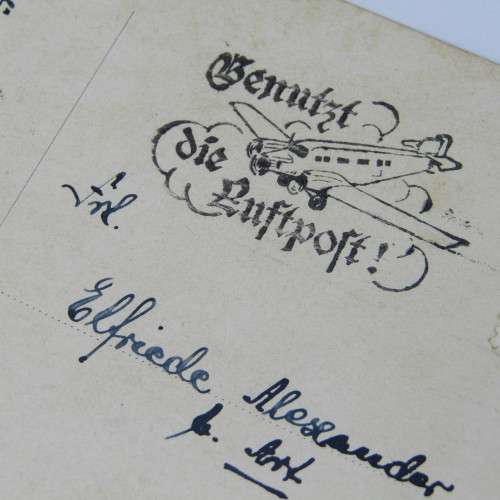 Genutzt
die
Luftpost!
Frl.
Elfriede Alexander
b. Art